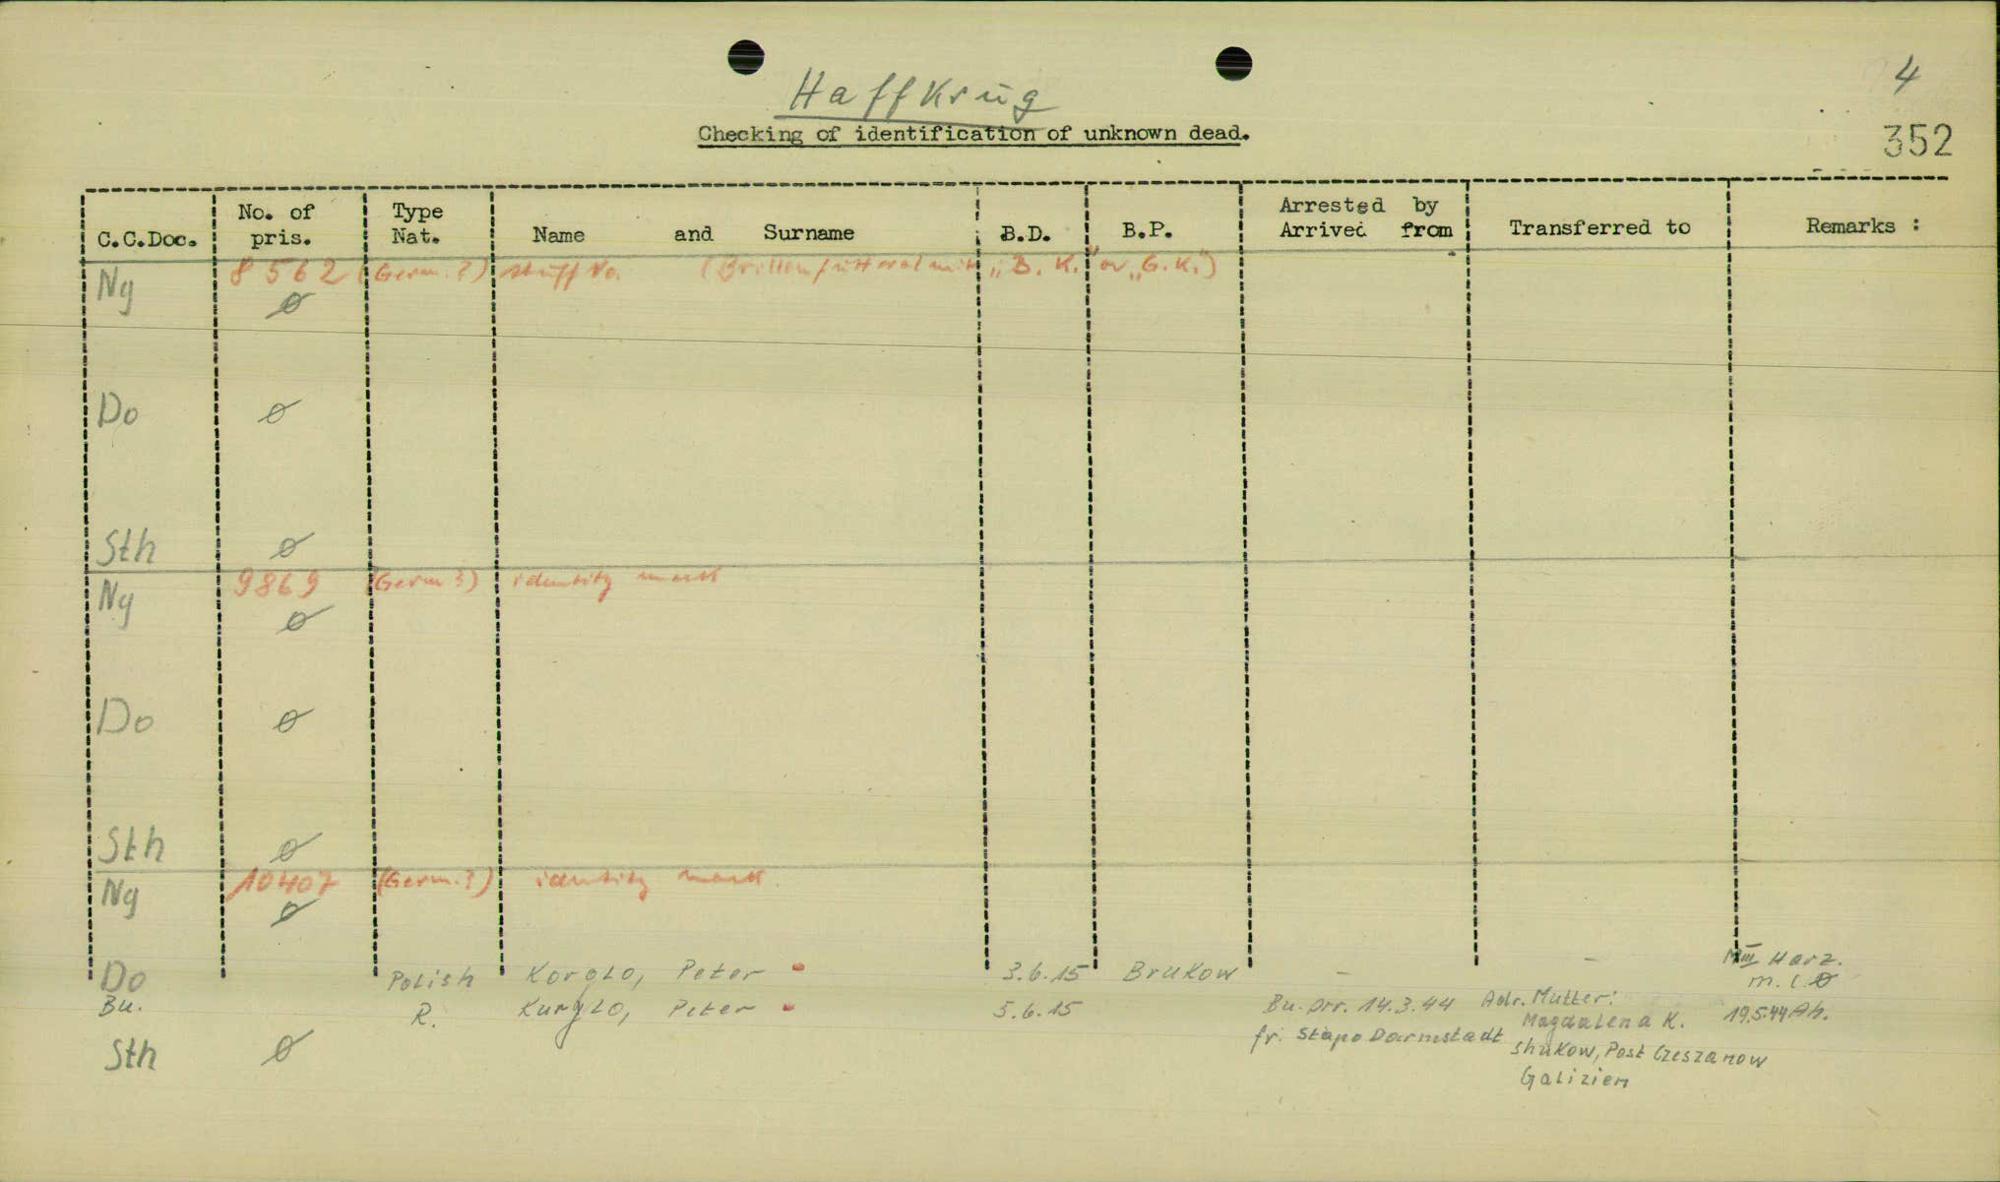 4
Haffkrug
Checking of identification of unknown dead.
352
C.C.Doc. No. of pris. Type Nat. Name and Surname B.D. B.P. Arrested by Arrived from Transferred to Remarks :
Ng 8562 (Germ.?) stuff No. (Brillenfutteral mit "B.K." or "G.K.")
ø
Do ø
Sth ø
Ng 9869 (Germ?) identity mark
ø
Do ø
Sth ø
Ng 10407 (Germ.?) identity mark
ø
Do Polish Korglo, Peter 3.6.15 Brukow – – Harz.
m.
Bu. R. Kurglo, Peter 5.6.15 Bu. arr. 14.3.44 Adr. Mutter: 19.5.44
Magdalena K.
fr. Stapo Darmstadt Shukow, Post Czeszanow
Sth ø
Galizien